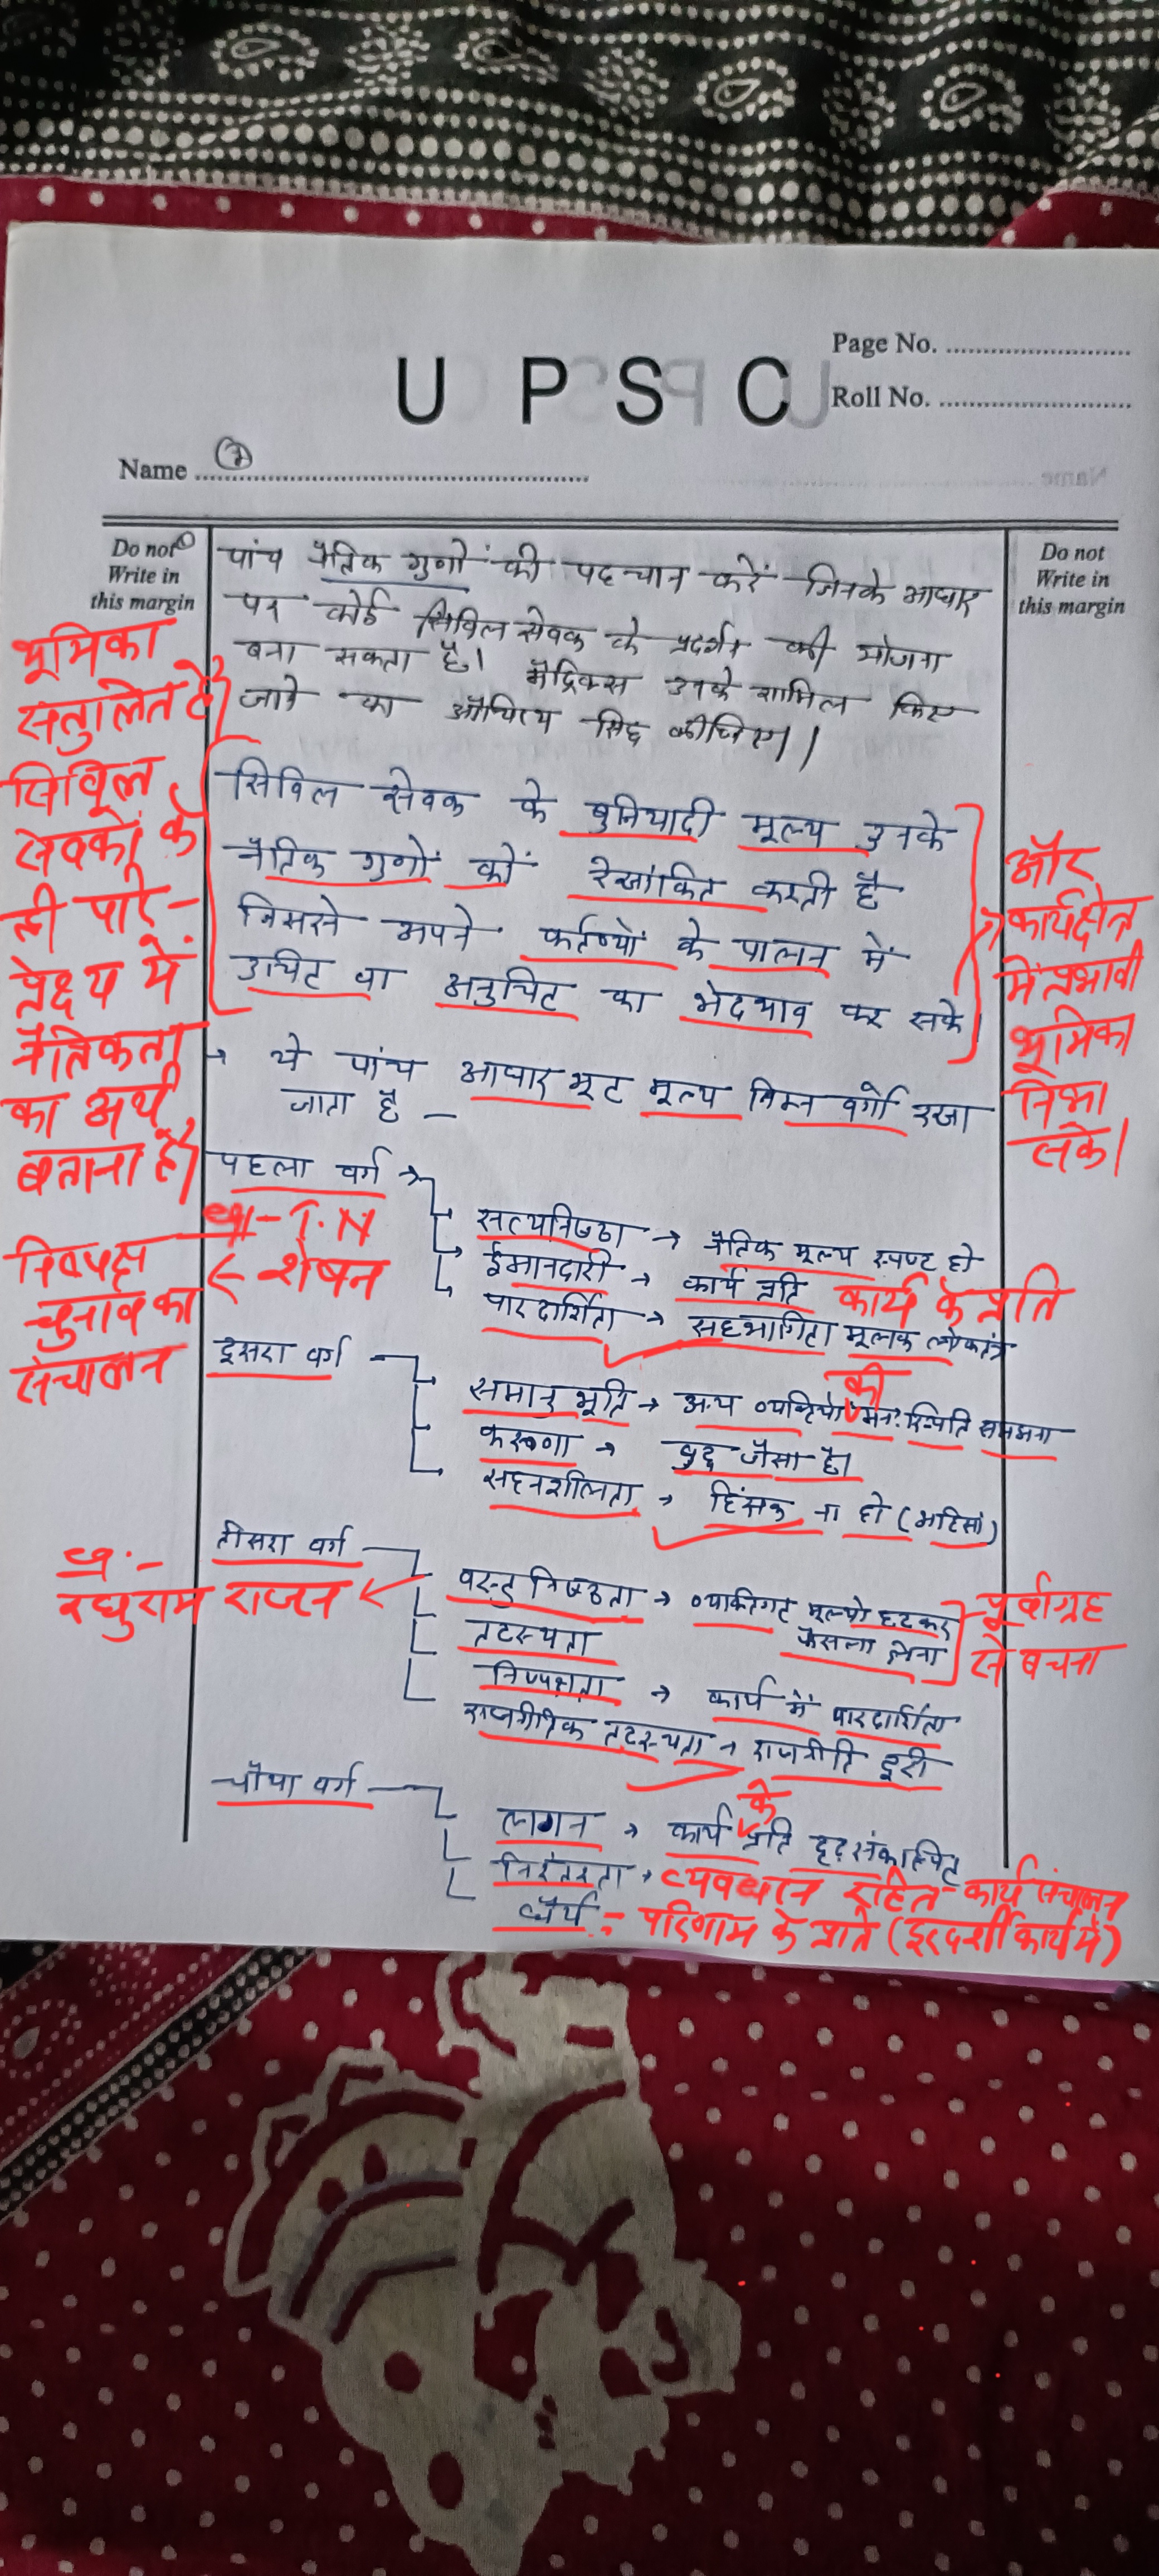 Page No.
U P S C
Roll No.
Name
7
Do not
Write in
this margin
Do not
Write in
this margin
पांच नैतिक गुणों की पहचान करें जिनके आधार
पर कोई सिविल सेवक के प्रदर्शन की योजना
बना सकता है। मैट्रिक्स उनके शामिल किए
जाने का औचित्य सिद्ध कीजिए।।
भूमिका
सतुलित है
सिविल
सेवकों के
ही परि-
प्रेक्ष्य में
नैतिकता
का अर्थ
बताना है
सिविल सेवक के बुनियादी मूल्य उनके
नैतिक गुणों को रेखांकित करती है
जिससे अपने कर्तव्यों के पालन में
उचित वा अनुचित का भेदभाव कर सके।
और
कार्यक्षेत्र
में प्रभावी
भूमिका
निभा
सके।
→ ये पांच आधार भूत मूल्य निम्न वर्गो रखा
जाता है –
पहला वर्ग →
सत्यनिष्ठा → नैतिक मूल्य स्पष्ट हो
ईमानदारी → कार्य प्रति कार्य के प्रति
पारदर्शिता → सहभागिता मूलक लोकतंत्र
T. N
शेषन
निष्पक्ष
चुनाव का
संचालन
दूसरा वर्ग
समानुभूति → अन्य व्यक्तियों की मन:स्थिति समझना
करूणा → बुद्ध जैसा है।
सहनशीलता → हिंसक ना हो (अहिंसा)
तीसरा वर्ग
वस्तुनिष्ठता → व्यक्तिगत मूल्यो हटकर
फैसला लेना
तटस्थता
निष्पक्षता → कार्य में पारदर्शिता
राजनीतिक तटस्थता → राजनीति दूरी
रघुराम राजन
पूर्वाग्रह
से बचना
चौथा वर्ग
लगन → कार्य के प्रति दृढ़संकल्पित
निरंतरता → व्यवधान रहित कार्य संचालन
धैर्य :- परिणाम के प्रति (दूरदर्शी कार्य में)